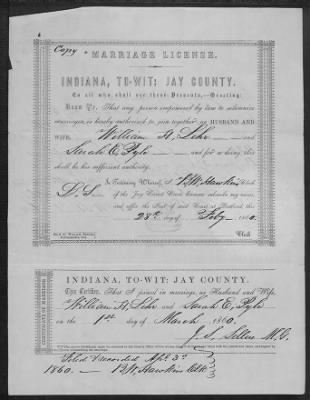 Copy
MARRIAGE LICENSE.
INDIANA, TO-WIT: JAY COUNTY.
To all who shall see these Presents,—Greeting:
Know Ye, That any person empowered by law to solemnize
marriages, is hereby authorized to join together as HUSBAND AND
WIFE, William H. Lehr and
Sarah E. Pyle and for so doing, this
shall be his sufficient authority.
L.S. In Testimony Whereof, I B.W. Hawkins Clerk
of the Jay Circuit Court, hereunto subscribe my name,
and affix the Seal of said Court at Portland this
28th day of Feby 1860.
Clerk
INDIANA, TO-WIT: JAY COUNTY.
This Certifies, That I joined in marriage, as Husband and Wife,
William H. Lehr and Sarah E. Pyle
on the 1st day of March 1860.
J. S. Sellers M.G.
CERTIFICATE OF MARRIAGE
Filed & recorded Apl. 3d
1860. — B.W. Hawkins Clk